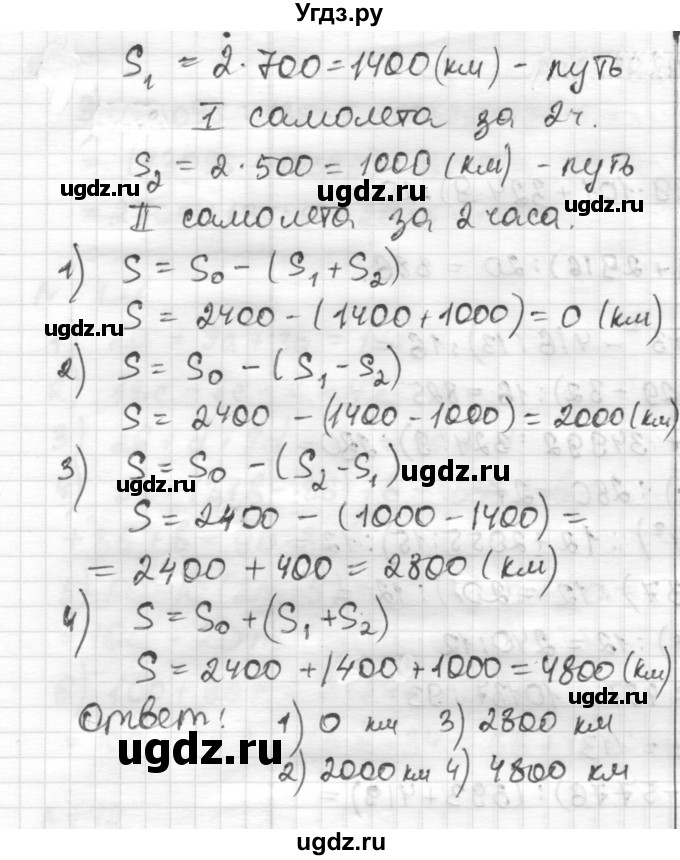 Угдз.ру
S₁ = 2·700 = 1400 (км) - путь
I самолета за 2ч.
S₂ = 2·500 = 1000 (км) - путь
ugdz.ru ugdz.ru ugdz.ru
II самолета за 2 часа.
1) S = S₀ - (S₁ + S₂)
S = 2400 - (1400 + 1000) = 0 (км)
ugdz.ru ugdz.ru
2) S = S₀ - (S₁ - S₂)
S = 2400 - (1400 - 1000) = 2000 (км)
3) S = S₀ - (S₂ - S₁)
ugdz.ru ugdz.ru
S = 2400 - (1000 - 1400) =
= 2400 + 400 = 2800 (км)
4) S = S₀ + (S₁ + S₂)
S = 2400 + 1400 + 1000 = 4800 (км)
ugdz.ru
Ответ: 1) 0 км 3) 2800 км
ugdz.ru
2) 2000 км 4) 4800 км
ugdz.ru
ugdz.ru